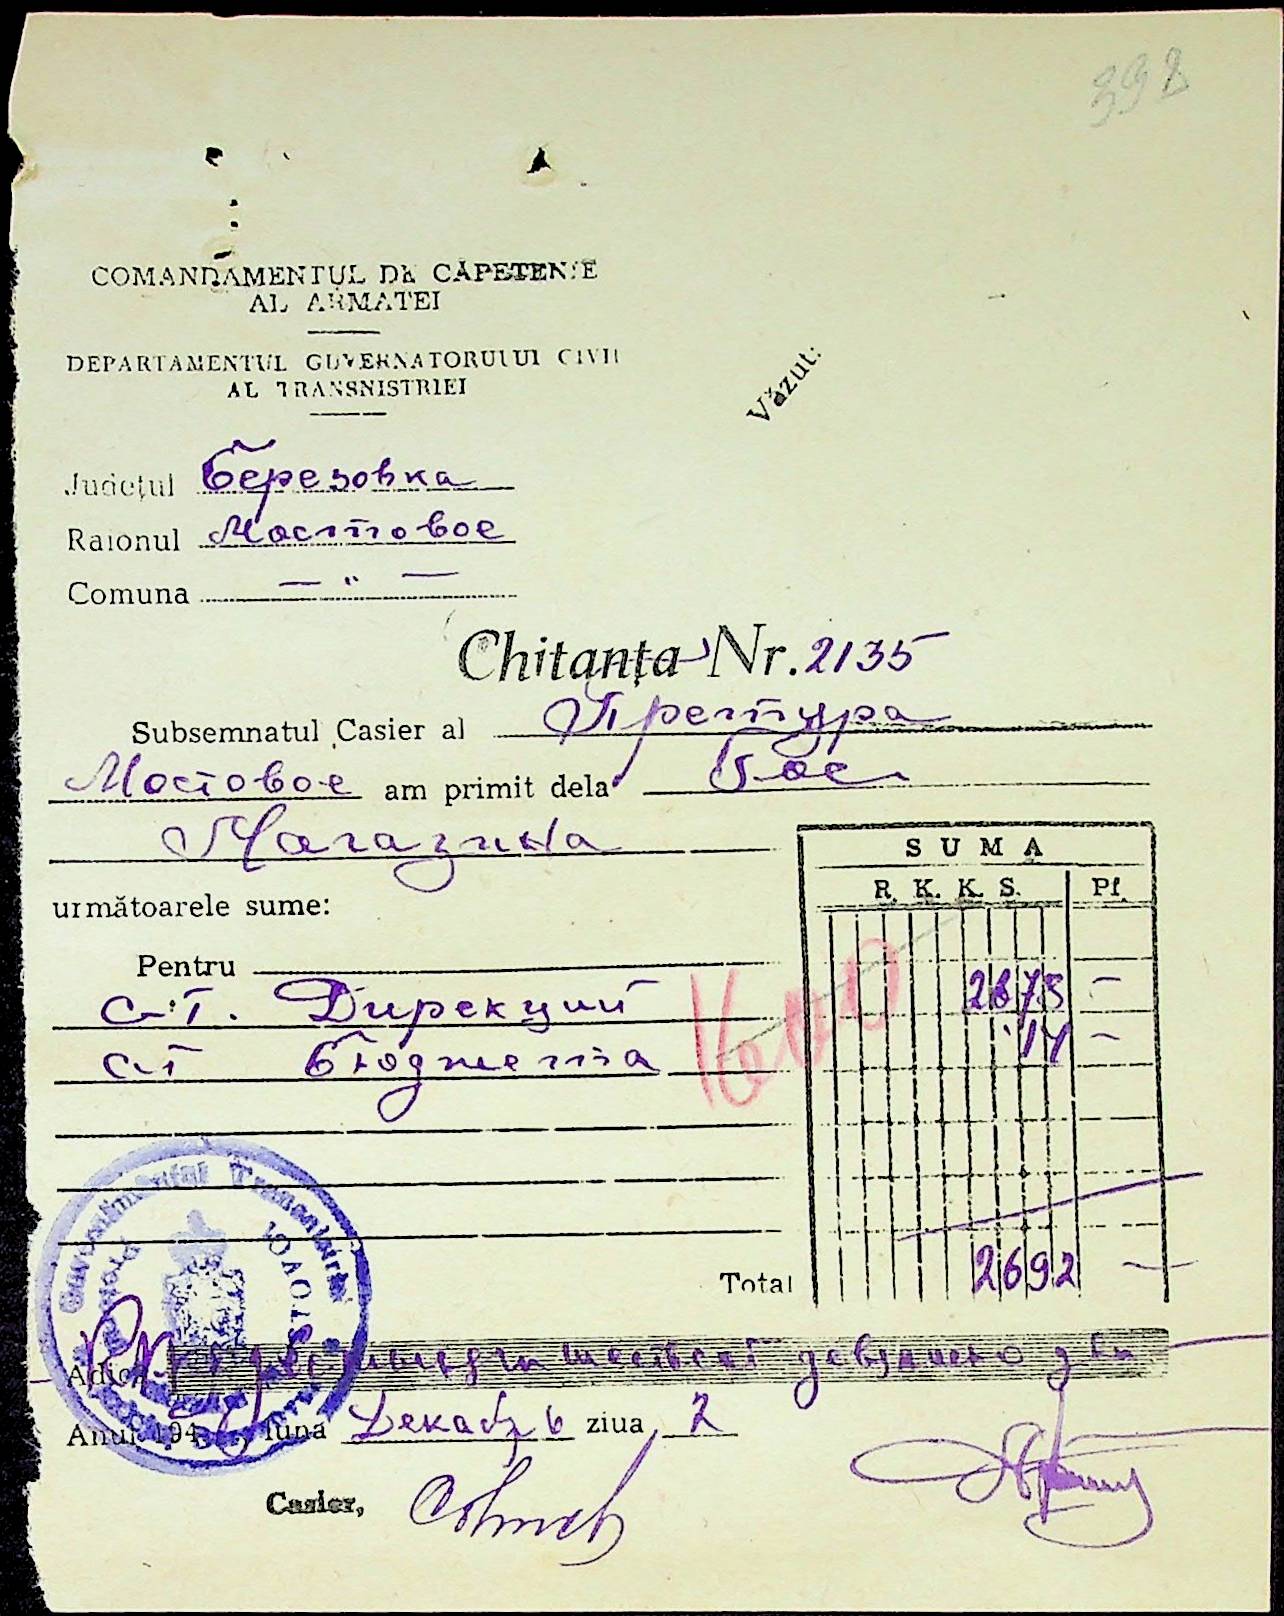 392
COMANDAMENTUL DE CĂPETENIE
AL ARMATEI
DEPARTAMENTUL GUVERNATORULUI CIVIL
AL TRANSNISTRIEI
Văzut:
Județul Березовка
Raionul Мостовое
Comuna — " —
Chitanța Nr. 2135
Subsemnatul Casier al Претура
Мостовое am primit dela Гос.
Магазина
SUMA
R. K. K. S. Pf.
următoarele sume:
Pentru
с.т. Дирекций 2678 —
с.т Бюджета 14 —
1600
Total 2692 —
Guvernământul Transnistriei
Adică две тысячи шестьсот девяносто два
Anul 194 luna Декабрь ziua 2
Casier,